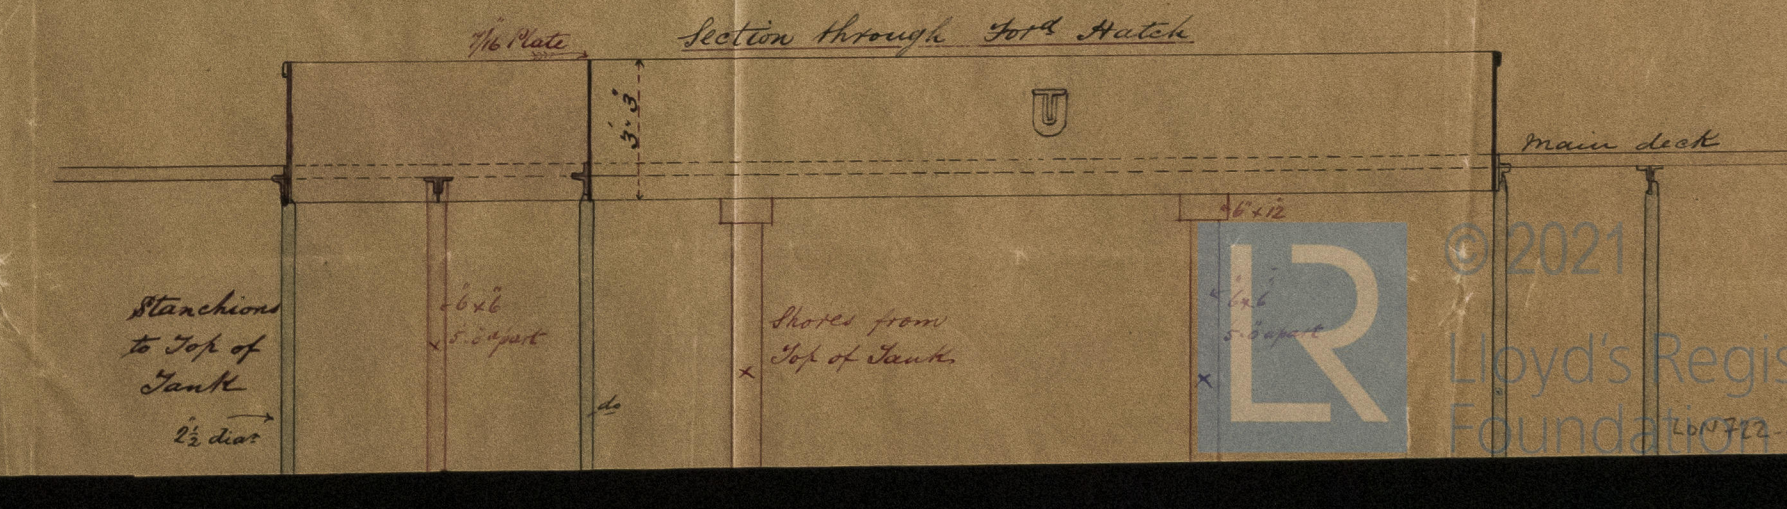 Section through Ford Hatch
7/16" Plate
3'. 3"
main deck
6" x 12"
Stanchions
to Top of
Tank
2½" diar
6" x 6"
5-0" apart
do
Shores from
Top of Tank
6" x 6"
5-0" apart
© 2021
Lloyd's Regis
Foundation
LR
LON722-